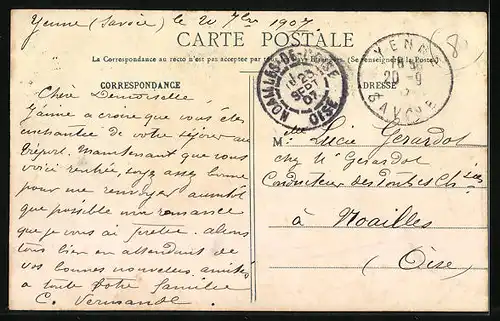 Yenne (Savoie) le 20 7bre 1907
CARTE POSTALE
La Correspondance au recto n'est pas acceptée par tous les pays Étrangers. (Se renseigner à la Poste).
CORRESPONDANCE
ADRESSE
NOAILLES-DE-L'OISE
23
SEPT
07
OISE
YENNE
20 -9
SAVOIE
8
Chère Demoiselle
J'aime à croire que vous êtes
enchantée de votre séjour au
Tréport. Maintenant que vous
voici rentrée, soyez assez bonne
pour me renvoyer aussitôt
que possible ma romance
que je vous ai prêtée. allons
tous bien en attendant de
vos bonnes nouvelles. amitiés
à toute votre famille
C. Vermande
Mlle Lucie Gerardot
chez Mr Gerardot
Conducteur des Ponts et Chées
à Noailles
(Oise)